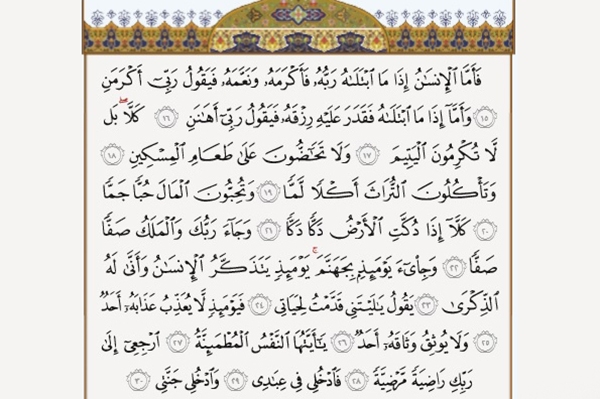 فَأَمَّا ٱلْإِنسَٰنُ إِذَا مَا ٱبْتَلَىٰهُ رَبُّهُۥ فَأَكْرَمَهُۥ وَنَعَّمَهُۥ فَيَقُولُ رَبِّىٓ أَكْرَمَنِ
١٥ وَأَمَّآ إِذَا مَا ٱبْتَلَىٰهُ فَقَدَرَ عَلَيْهِ رِزْقَهُۥ فَيَقُولُ رَبِّىٓ أَهَٰنَنِ ١٦ كَلَّا ۖ بَل
لَّا تُكْرِمُونَ ٱلْيَتِيمَ ١٧ وَلَا تَحَٰٓضُّونَ عَلَىٰ طَعَامِ ٱلْمِسْكِينِ ١٨
وَتَأْكُلُونَ ٱلتُّرَاثَ أَكْلًا لَّمًّا ١٩ وَتُحِبُّونَ ٱلْمَالَ حُبًّا جَمًّا
٢٠ كَلَّآ إِذَا دُكَّتِ ٱلْأَرْضُ دَكًّا دَكًّا ٢١ وَجَآءَ رَبُّكَ وَٱلْمَلَكُ صَفًّا
صَفًّا ٢٢ وَجِا۟ىٓءَ يَوْمَئِذٍۭ بِجَهَنَّمَ ۚ يَوْمَئِذٍ يَتَذَكَّرُ ٱلْإِنسَٰنُ وَأَنَّىٰ لَهُ
ٱلذِّكْرَىٰ ٢٣ يَقُولُ يَٰلَيْتَنِى قَدَّمْتُ لِحَيَاتِى ٢٤ فَيَوْمَئِذٍ لَّا يُعَذِّبُ عَذَابَهُۥٓ أَحَدٌ
٢٥ وَلَا يُوثِقُ وَثَاقَهُۥٓ أَحَدٌ ٢٦ يَٰٓأَيَّتُهَا ٱلنَّفْسُ ٱلْمُطْمَئِنَّةُ ٢٧ ٱرْجِعِىٓ إِلَىٰ
رَبِّكِ رَاضِيَةً مَّرْضِيَّةً ٢٨ فَٱدْخُلِى فِى عِبَٰدِى ٢٩ وَٱدْخُلِى جَنَّتِى ٣٠